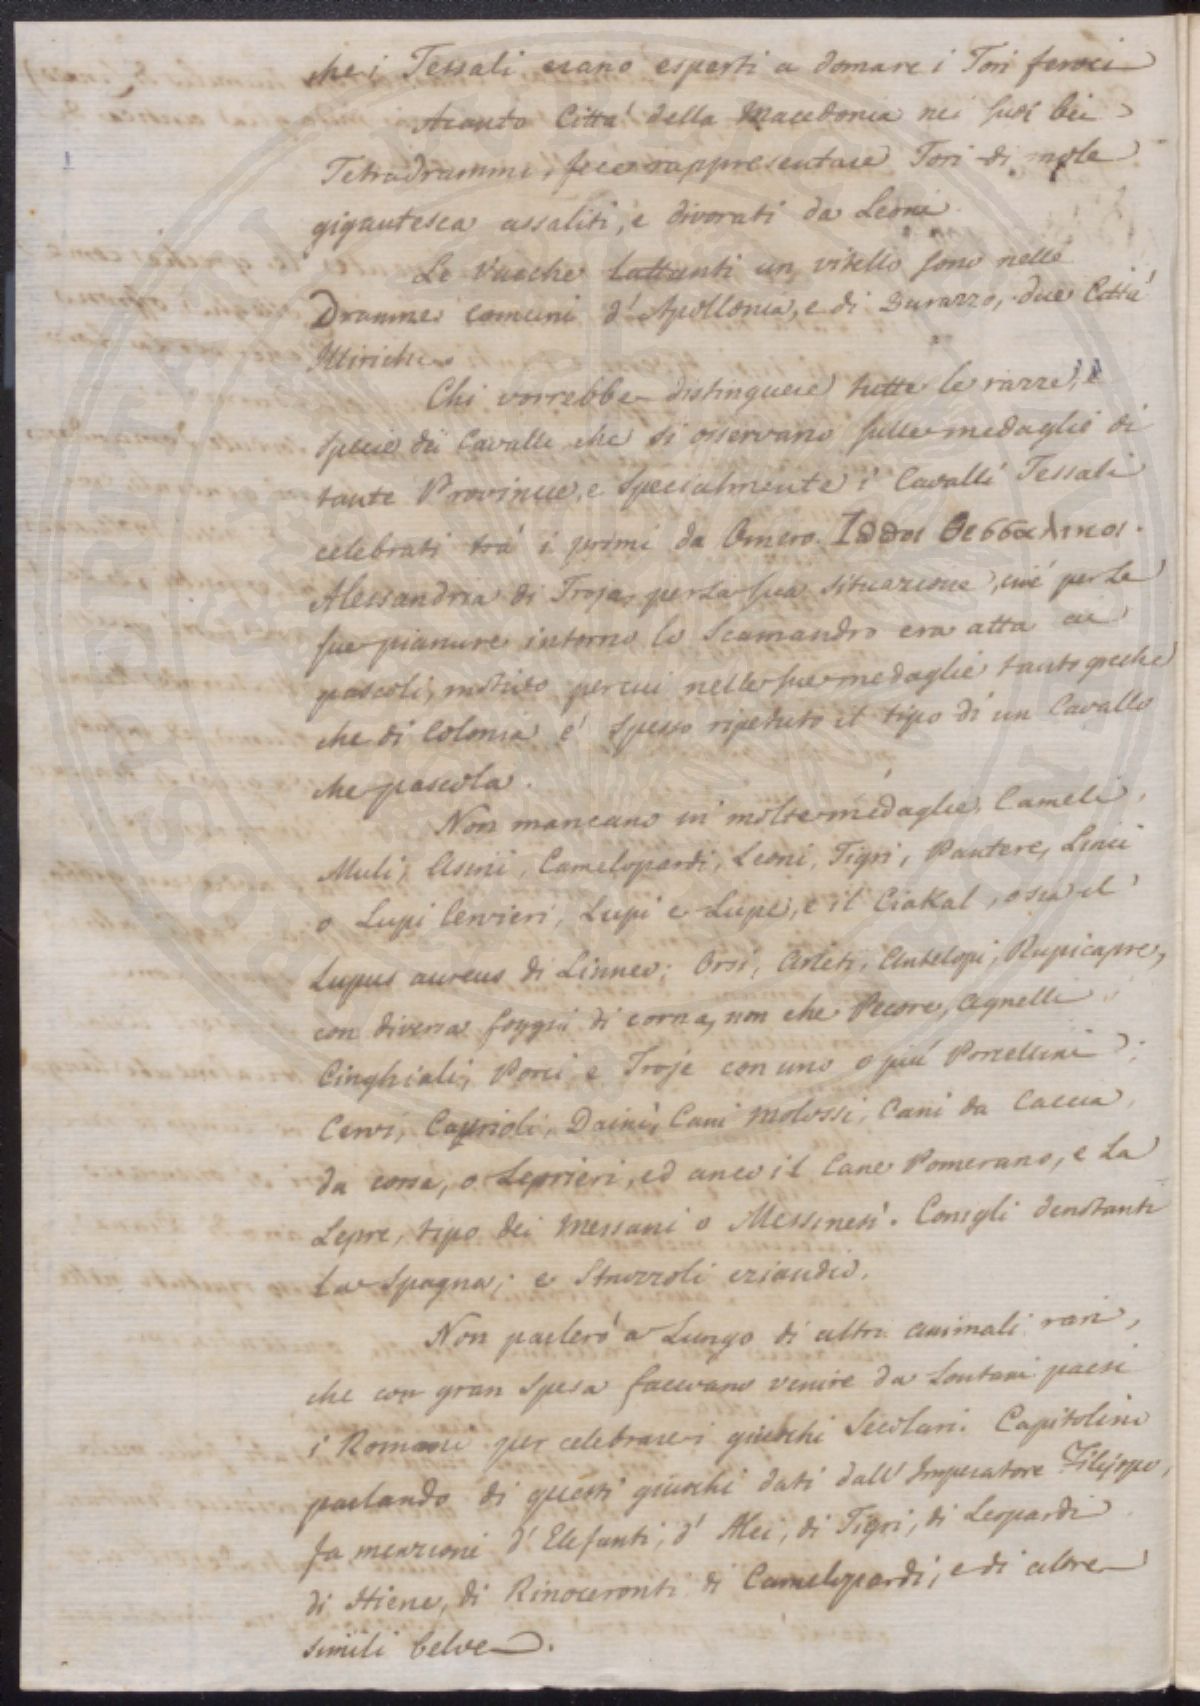 che i Tessali erano esperti a domare i Tori feroci
Acanto Città della Macedonia nei suoi bei
Tetradrammi, fece rappresentare Tori di mole
gigantesca assaliti, e divorati da Leoni.
Le Vacche lattanti un vitello sono nelle
Dramme comuni d'Apollonia, e di Durazzo, due Città
Illiriche.
Chi vorrebbe distinguere tutte le razze, e
specie di Cavalli che si osservano sulle medaglie di
tante Provincie, e specialmente i Cavalli Tessali
celebrati trà i primi da Omero.
Alessandria di Troja, per la sua situazione, cioè per le
sue pianure intorno lo Scamandro era atta ai
pascoli, motivo per cui nelle sue medaglie tanto greche
che di Colonia è spesso ripetuto il tipo di un Cavallo
che pascola.
Non mancano in molte medaglie, Cameli,
Muli, Asini, Camelopardi, Leoni, Tigri, Pantere, Linci
o Lupi Cervieri, Lupi e Lupe, e il CiaKal, o sia il
Lupus aureus di Linneo; Orsi, Arieti, Antelopi, Rupicapre,
con diversa foggia di corna, non che Pecore, Agnelli
Cinghiali, Porci, e Troje con uno o più Porcellini;
Cervi, Caprioli, Daini, Cani Molossi, Cani da Caccia,
da corsa, o Leprieri, ed anco il Cane Pomerano, e la
Lepre, tipo dei Messani o Messinesi. Conigli denotanti
la Spagna; e Struzzoli eziandio.
Non parlerò a lungo di altri animali rari,
che con gran spesa facevano venire da lontani paesi
i Romani per celebrare i giuochi Secolari. Capitolino
parlando di questi giuochi dati dall'Imperatore Filippo,
fa menzione d'Elefanti, d'Alci, di Tigri, di Leopardi
di Hiene, di Rinoceronti di Camelopardi, e di altre
simili belve.